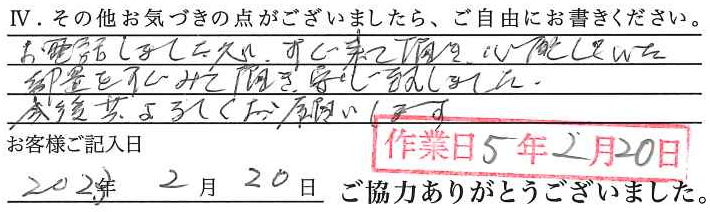 Ⅳ．その他お気づきの点がございましたら、ご自由にお書きください。
お電話しました処、すぐ来て頂き、心配していた
部置をすぐみて頂き安心致しました。
今後共よろしくお願いします
お客様ご記入日
作業日5年2月20日
2023年 2月20日 ご協力ありがとうございました。